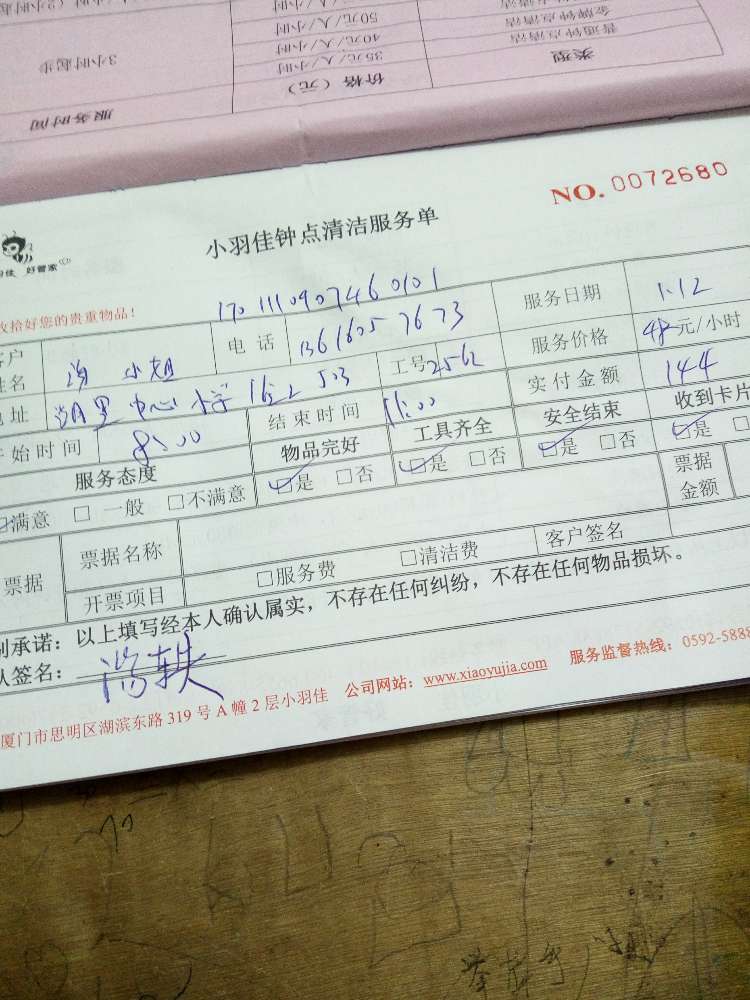 服务时间
价格（元）
类型
3小时起步
35元/人/小时
普通钟点清洁
40元/人/小时
金牌钟点清洁
50元/人/小时
NO. 0072680
小羽佳钟点清洁服务单
好管家
收拾好您的贵重物品！
1701110907460101
姓名
小姐
电话
13616057673
服务日期
1.12
地址
中心小学
503
工号
2562
服务价格
48元/小时
开始时间
8:00
结束时间
11:00
实付金额
144
服务态度
物品完好
工具齐全
安全结束
收到卡片
满意 □ 一般 □不满意
☑是 □否
☑是 □否
☑是 □否
☑是 □
票据
票据名称
票据金额
开票项目
□服务费
□清洁费
客户签名
承诺：以上填写经本人确认属实，不存在任何纠纷，不存在任何物品损坏。
人签名：
厦门市思明区湖滨东路319号A幢2层小羽佳
公司网站：www.xiaoyujia.com
服务监督热线：0592-5888